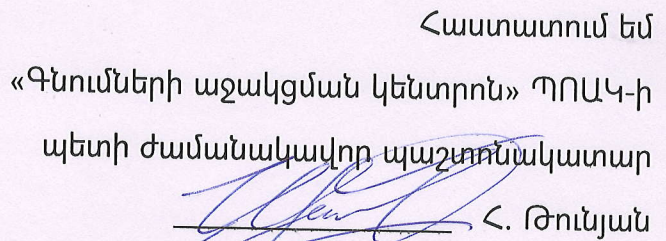 Հաստատում եմ
«Գնումների աջակցման կենտրոն» ՊՈԱԿ-ի
պետի ժամանակավոր պաշտոնակատար
Հ. Թունյան